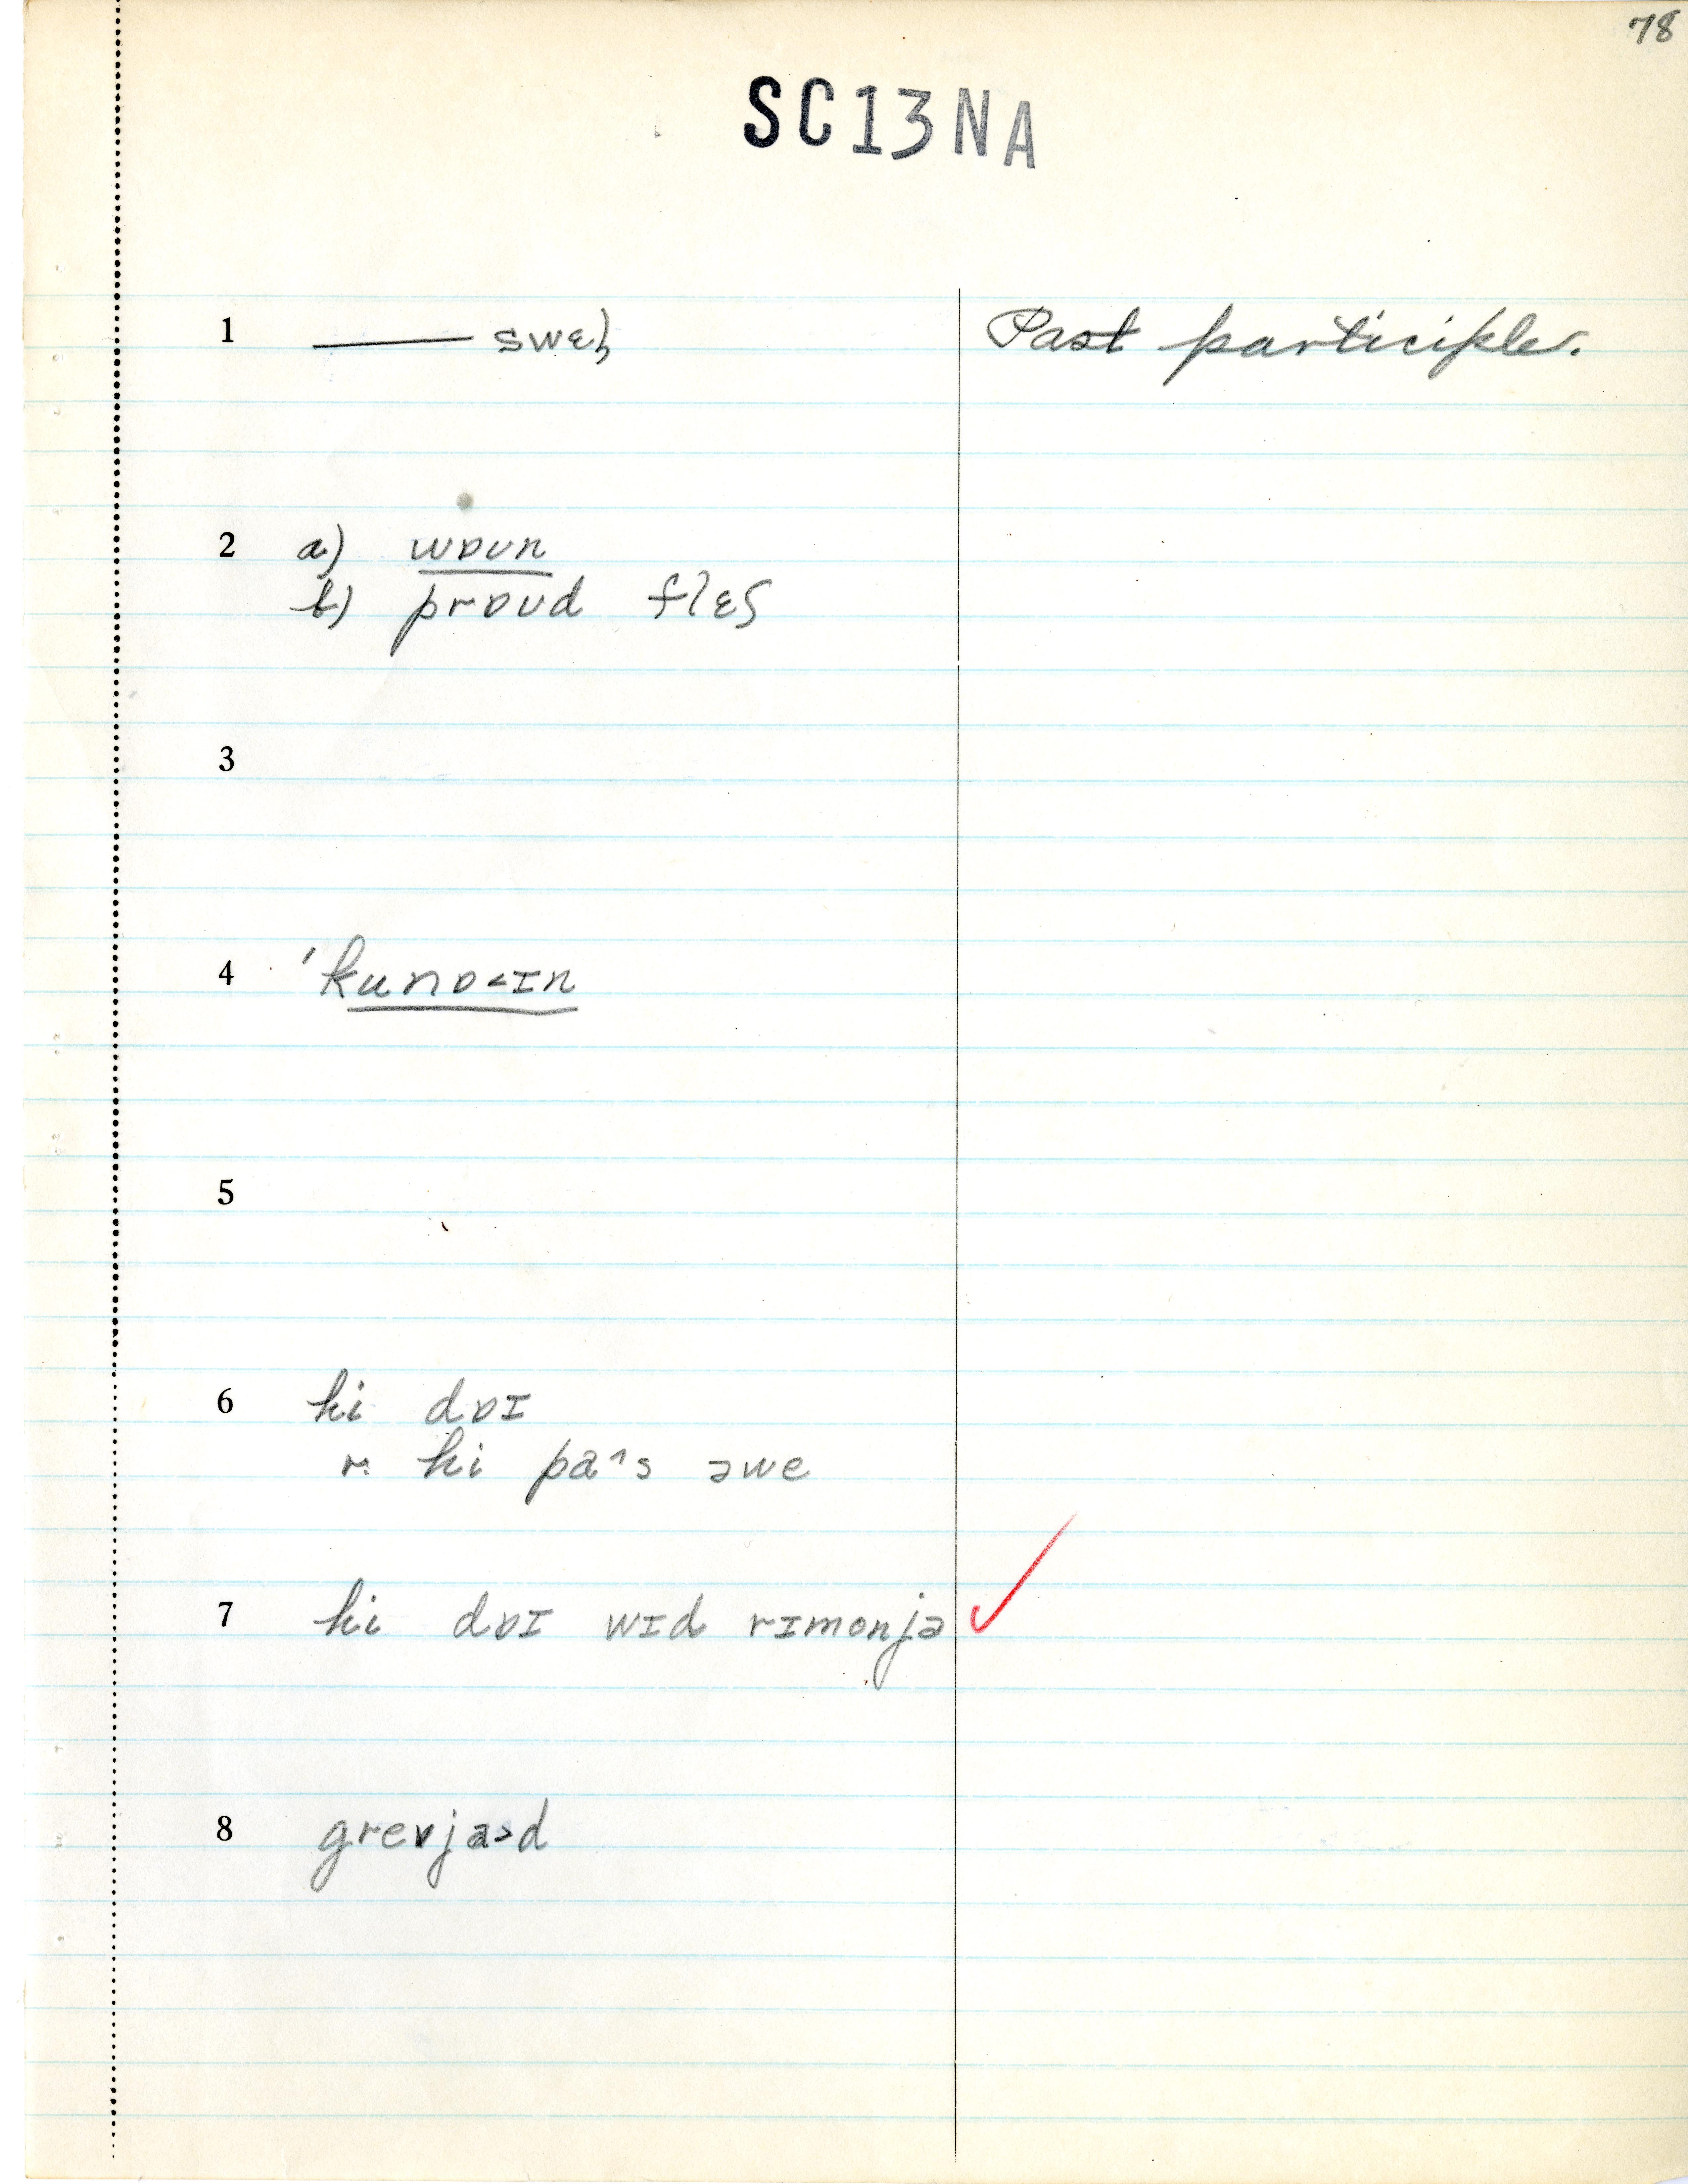 78
SC13NA
1 —— swɛɫ Past participle.
2 a) wɒʊn
b) prɒʊd flɛʃ
3
4 ˈkunɒ˂ɪn
5
6 hi dɒɪ
r. hi pa˄s əwe
7 hi dɒɪ wɪd rɪmonjə ✓
8 grevja˃d